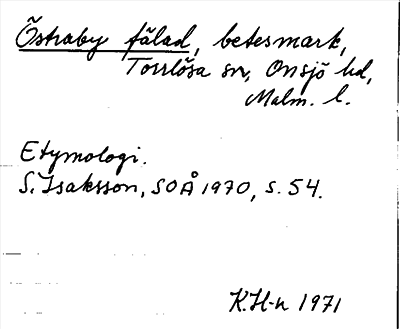 Östraby fälad, betesmark,
Torrlösa sn, Onsjö hd,
Malm. l.
Etymologi.
S. Isaksson, SOÅ 1970, s. 54.
K.H-n 1971